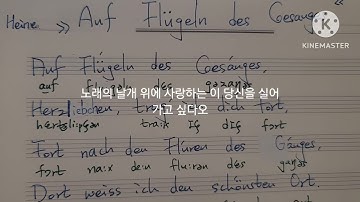 Heine → "Auf Flügeln des Gesanges"
KINEMASTER
Auf Flügeln des Gesanges,
노래의 날개 위에 사랑하는 이 당신을 실어
가고 싶다오
Herzliebchen, trag ich dich fort,
hɛrtsli:pçən tra:k ıç dıç fɔrt
Fort nach den Fluren des Ganges,
fɔrt na:x de:n flu:rən dɛs
Dort weiss ich den schönsten Ort.